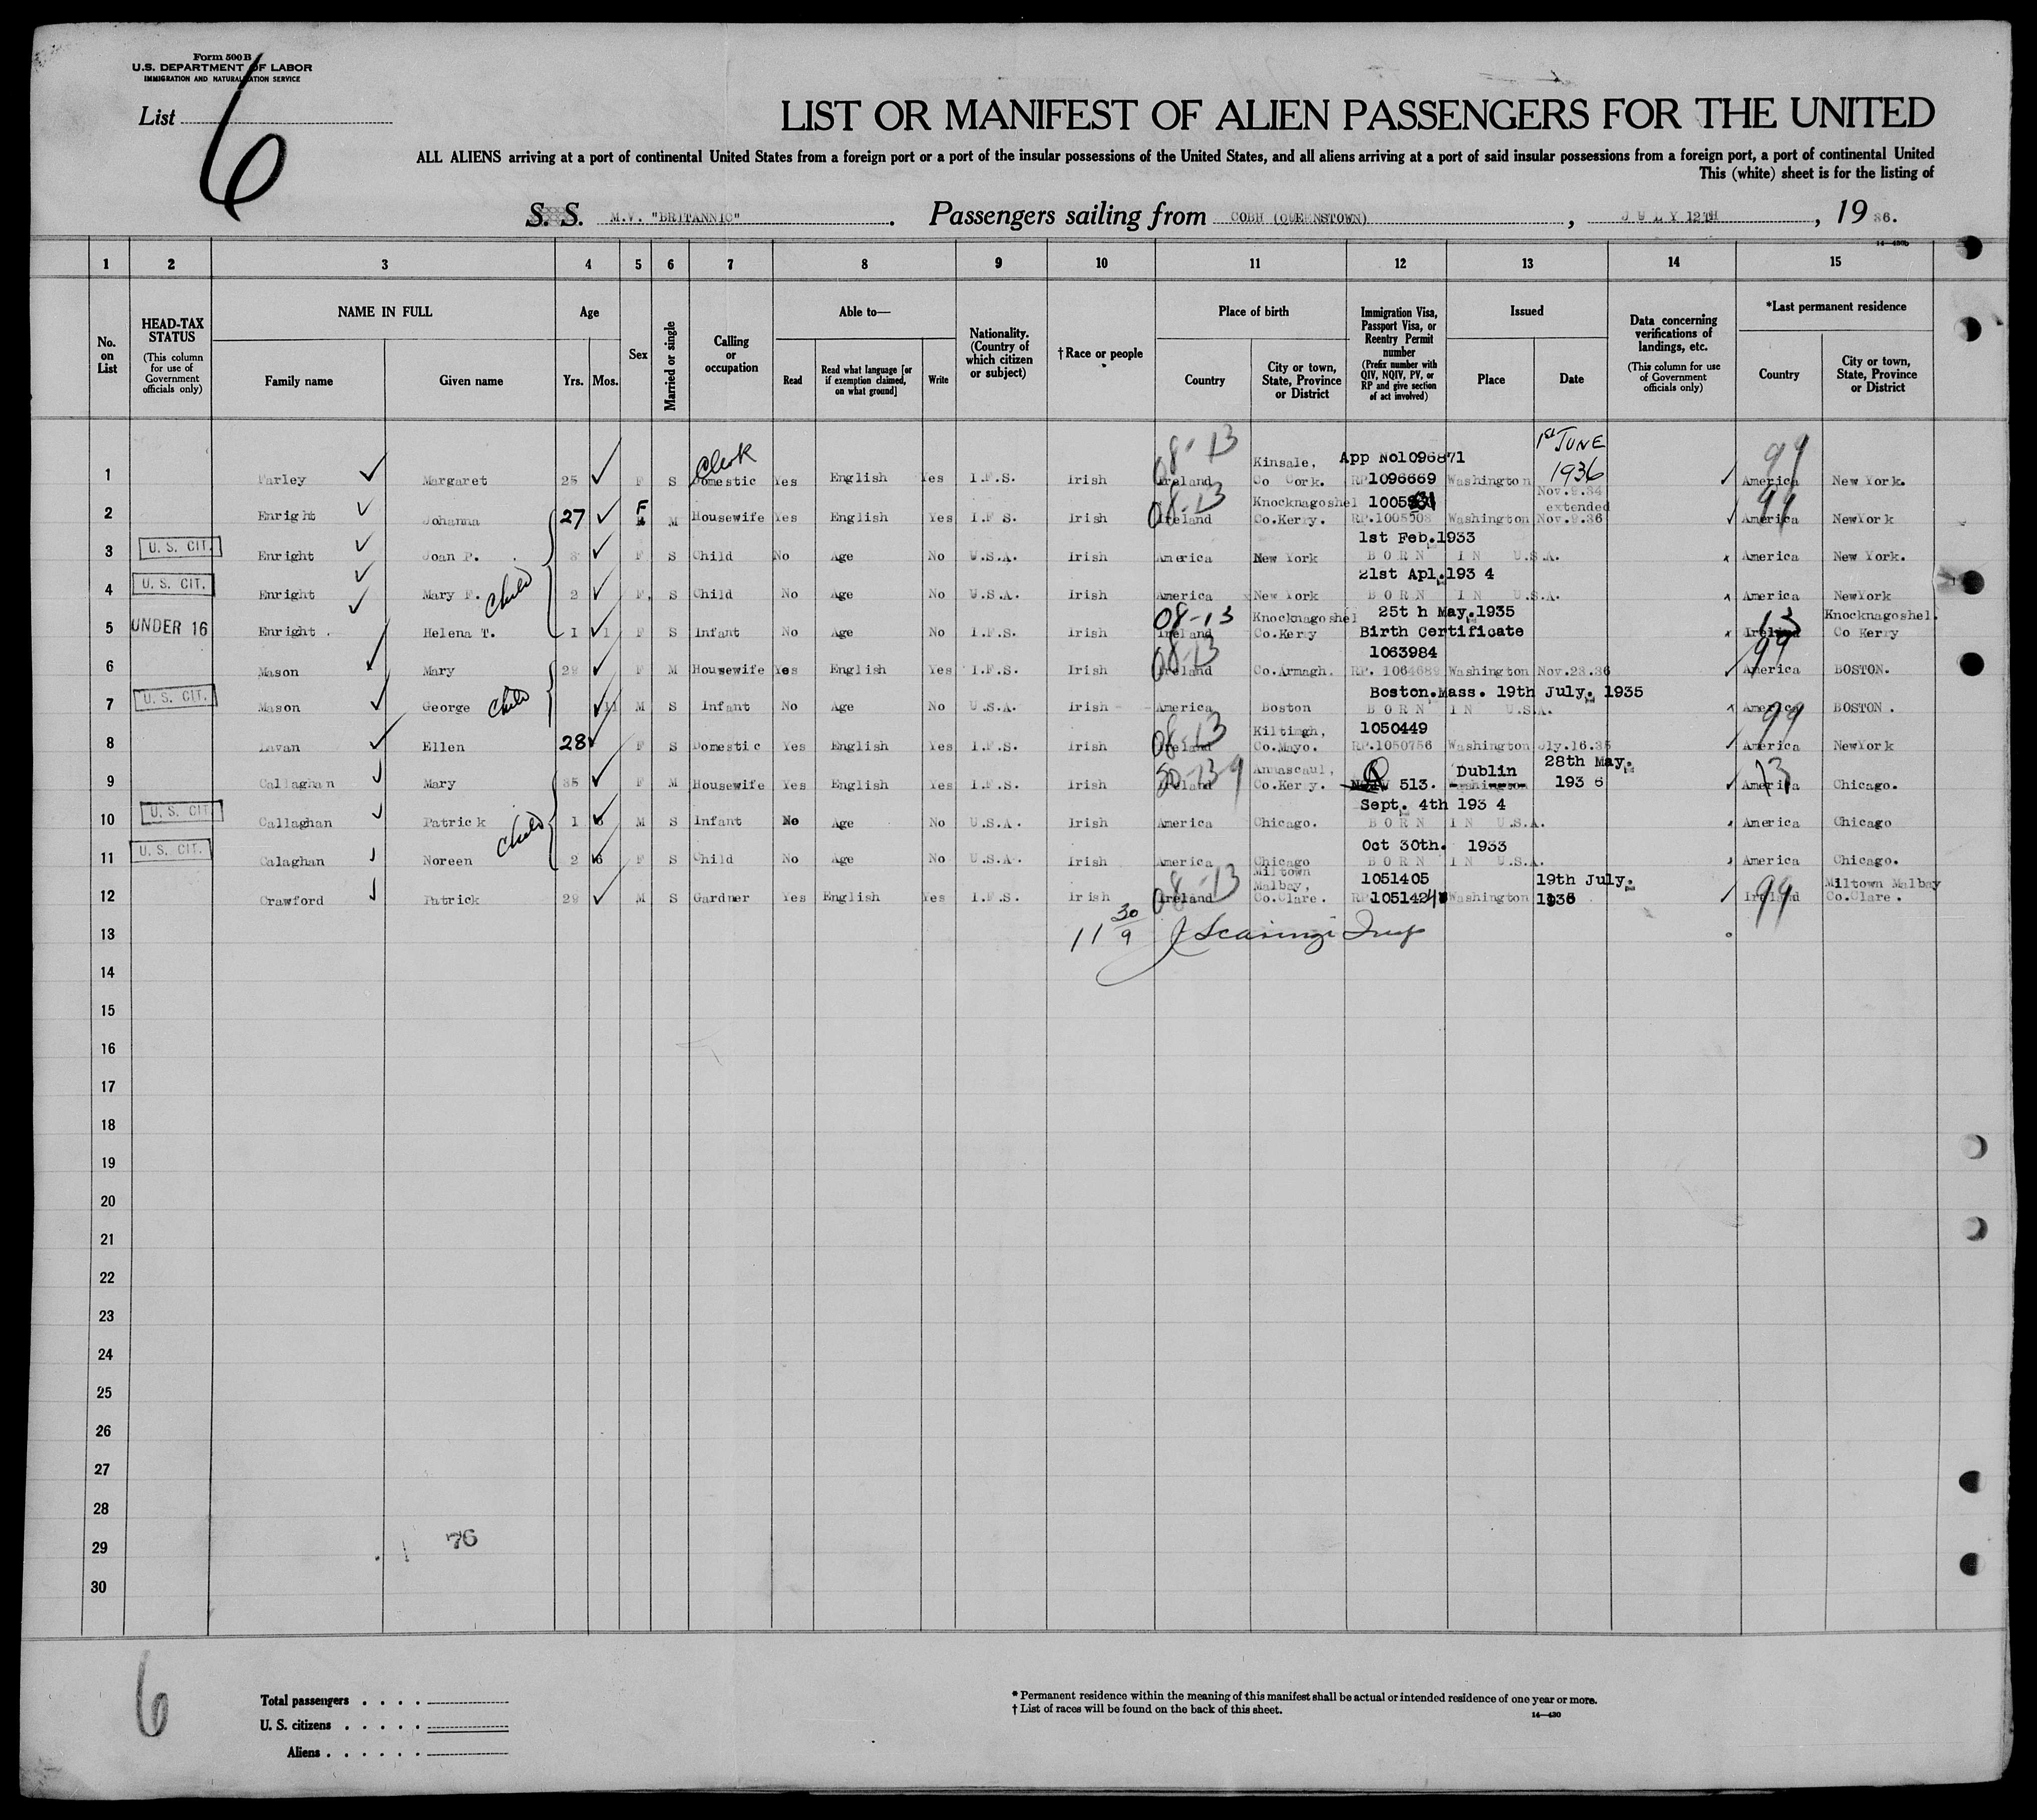 Form 500 B
U.S. DEPARTMENT OF LABOR
IMMIGRATION AND NATURALIZATION SERVICE
List 6
LIST OR MANIFEST OF ALIEN PASSENGERS FOR THE UNITED
ALL ALIENS arriving at a port of continental United States from a foreign port or a port of the insular possessions of the United States, and all aliens arriving at a port of said insular possessions from a foreign port, a port of continental United
This (white) sheet is for the listing of
S. S. M.V. "BRITANNIC". Passengers sailing from COBH (QUEENSTOWN), JULY 12TH, 19 36.
14—430b
1 2 3 4 5 6 7 8 9 10 11 12 13 14 15
No. on List
HEAD-TAX STATUS (This column for use of Government officials only)
NAME IN FULL
Family name Given name
Age
Yrs. Mos.
Sex
Married or single
Calling or occupation
Able to—
Read
Read what language [or if exemption claimed, on what ground]
Write
Nationality. (Country of which citizen or subject)
†Race or people
Place of birth
Country
City or town, State, Province or District
Immigration Visa, Passport Visa, or Reentry Permit number (Prefix number with QIV, NQIV, PV, or RP and give section of act involved)
Issued
Place Date
Data concerning verifications of landings, etc. (This column for use of Government officials only)
*Last permanent residence
Country
City or town, State, Province or District
Clerk 08-13 Kinsale, App No1096871 1st JUNE 99
1 Farley Margaret 25 F S Domestic Yes English Yes I.F.S. Irish Ireland Co Cork. RP 1096669 Washington 1936 America New York.
F 08-13 Knocknagoshel Nov.9.34 extended 99
2 Enright Johanna 27 M Housewife Yes English Yes I.F.S. Irish Ireland Co.Kerry. RP.100550 Washington Nov.9.36 America NewYork
1st Feb.1933
3 U. S. CIT. Enright Joan P. 3 F S Child No Age No U.S.A. Irish America New York BORN IN U.S.A. America New York.
21st Apl.193 4
4 U. S. CIT. Enright Mary F. Child 2 F. S Child No Age No U.S.A. Irish America New York BORN IN U.S.A. America NewYork
08-13 Knocknagoshel 25t h May.1935 13 Knocknagoshel.
5 UNDER 16 Enright. Helena T. 1 1 F S Infant No Age No I.F.S. Irish Ireland Co.Kerry Birth Certificate Ireland Co Kerry
08-13 1063984 99
6 Mason Mary 29 F M Housewife Yes English Yes I.F.S. Irish Ireland Co.Armagh. RP. 1064689 Washington Nov.23.36 America BOSTON.
Boston.Mass. 19th July. 1935
7 U. S. CIT. Mason George Child 11 M S Infant No Age No U.S.A. Irish America Boston BORN IN U.S.A. America BOSTON.
08-13 Kiltimgh, 1050449 99
8 Lavan Ellen 28 F S Domestic Yes English Yes I.F.S. Irish Ireland Co.Mayo. RP.1050756 Washington Jly.16.35 America NewYork
50-13-9 Annascaul, Dublin 28th May. 13
9 Callaghan Mary 35 F M Housewife Yes English Yes I.F.S. Irish Ireland Co.Kerry. 513. Washington 193 6 America Chicago.
Sept. 4th 193 4
10 U. S. CIT Callaghan Patrick Child 1 M S Infant No Age No U.S.A. Irish America Chicago. BORN IN U.S.A. America Chicago
Oct 30th. 1933
11 U. S. CIT. Calaghan Noreen 2 F S Child No Age No U.S.A. Irish America Chicago BORN IN U.S.A. America Chicago.
08-13 Miltown Malbay, 1051405 19th July. 99 Miltown Malbay
12 Crawford Patrick 29 M S Gardner Yes English Yes I.F.S. Irish Ireland Co.Clare. RP 105142 Washington Ireland Co.Clare.
13 11 30/9
14
15
16
17
18
19
20
21
22
23
24
25
26
27
28
29 76
30
6
Total passengers
U. S. citizens
Aliens
* Permanent residence within the meaning of this manifest shall be actual or intended residence of one year or more.
† List of races will be found on the back of this sheet.
14—430